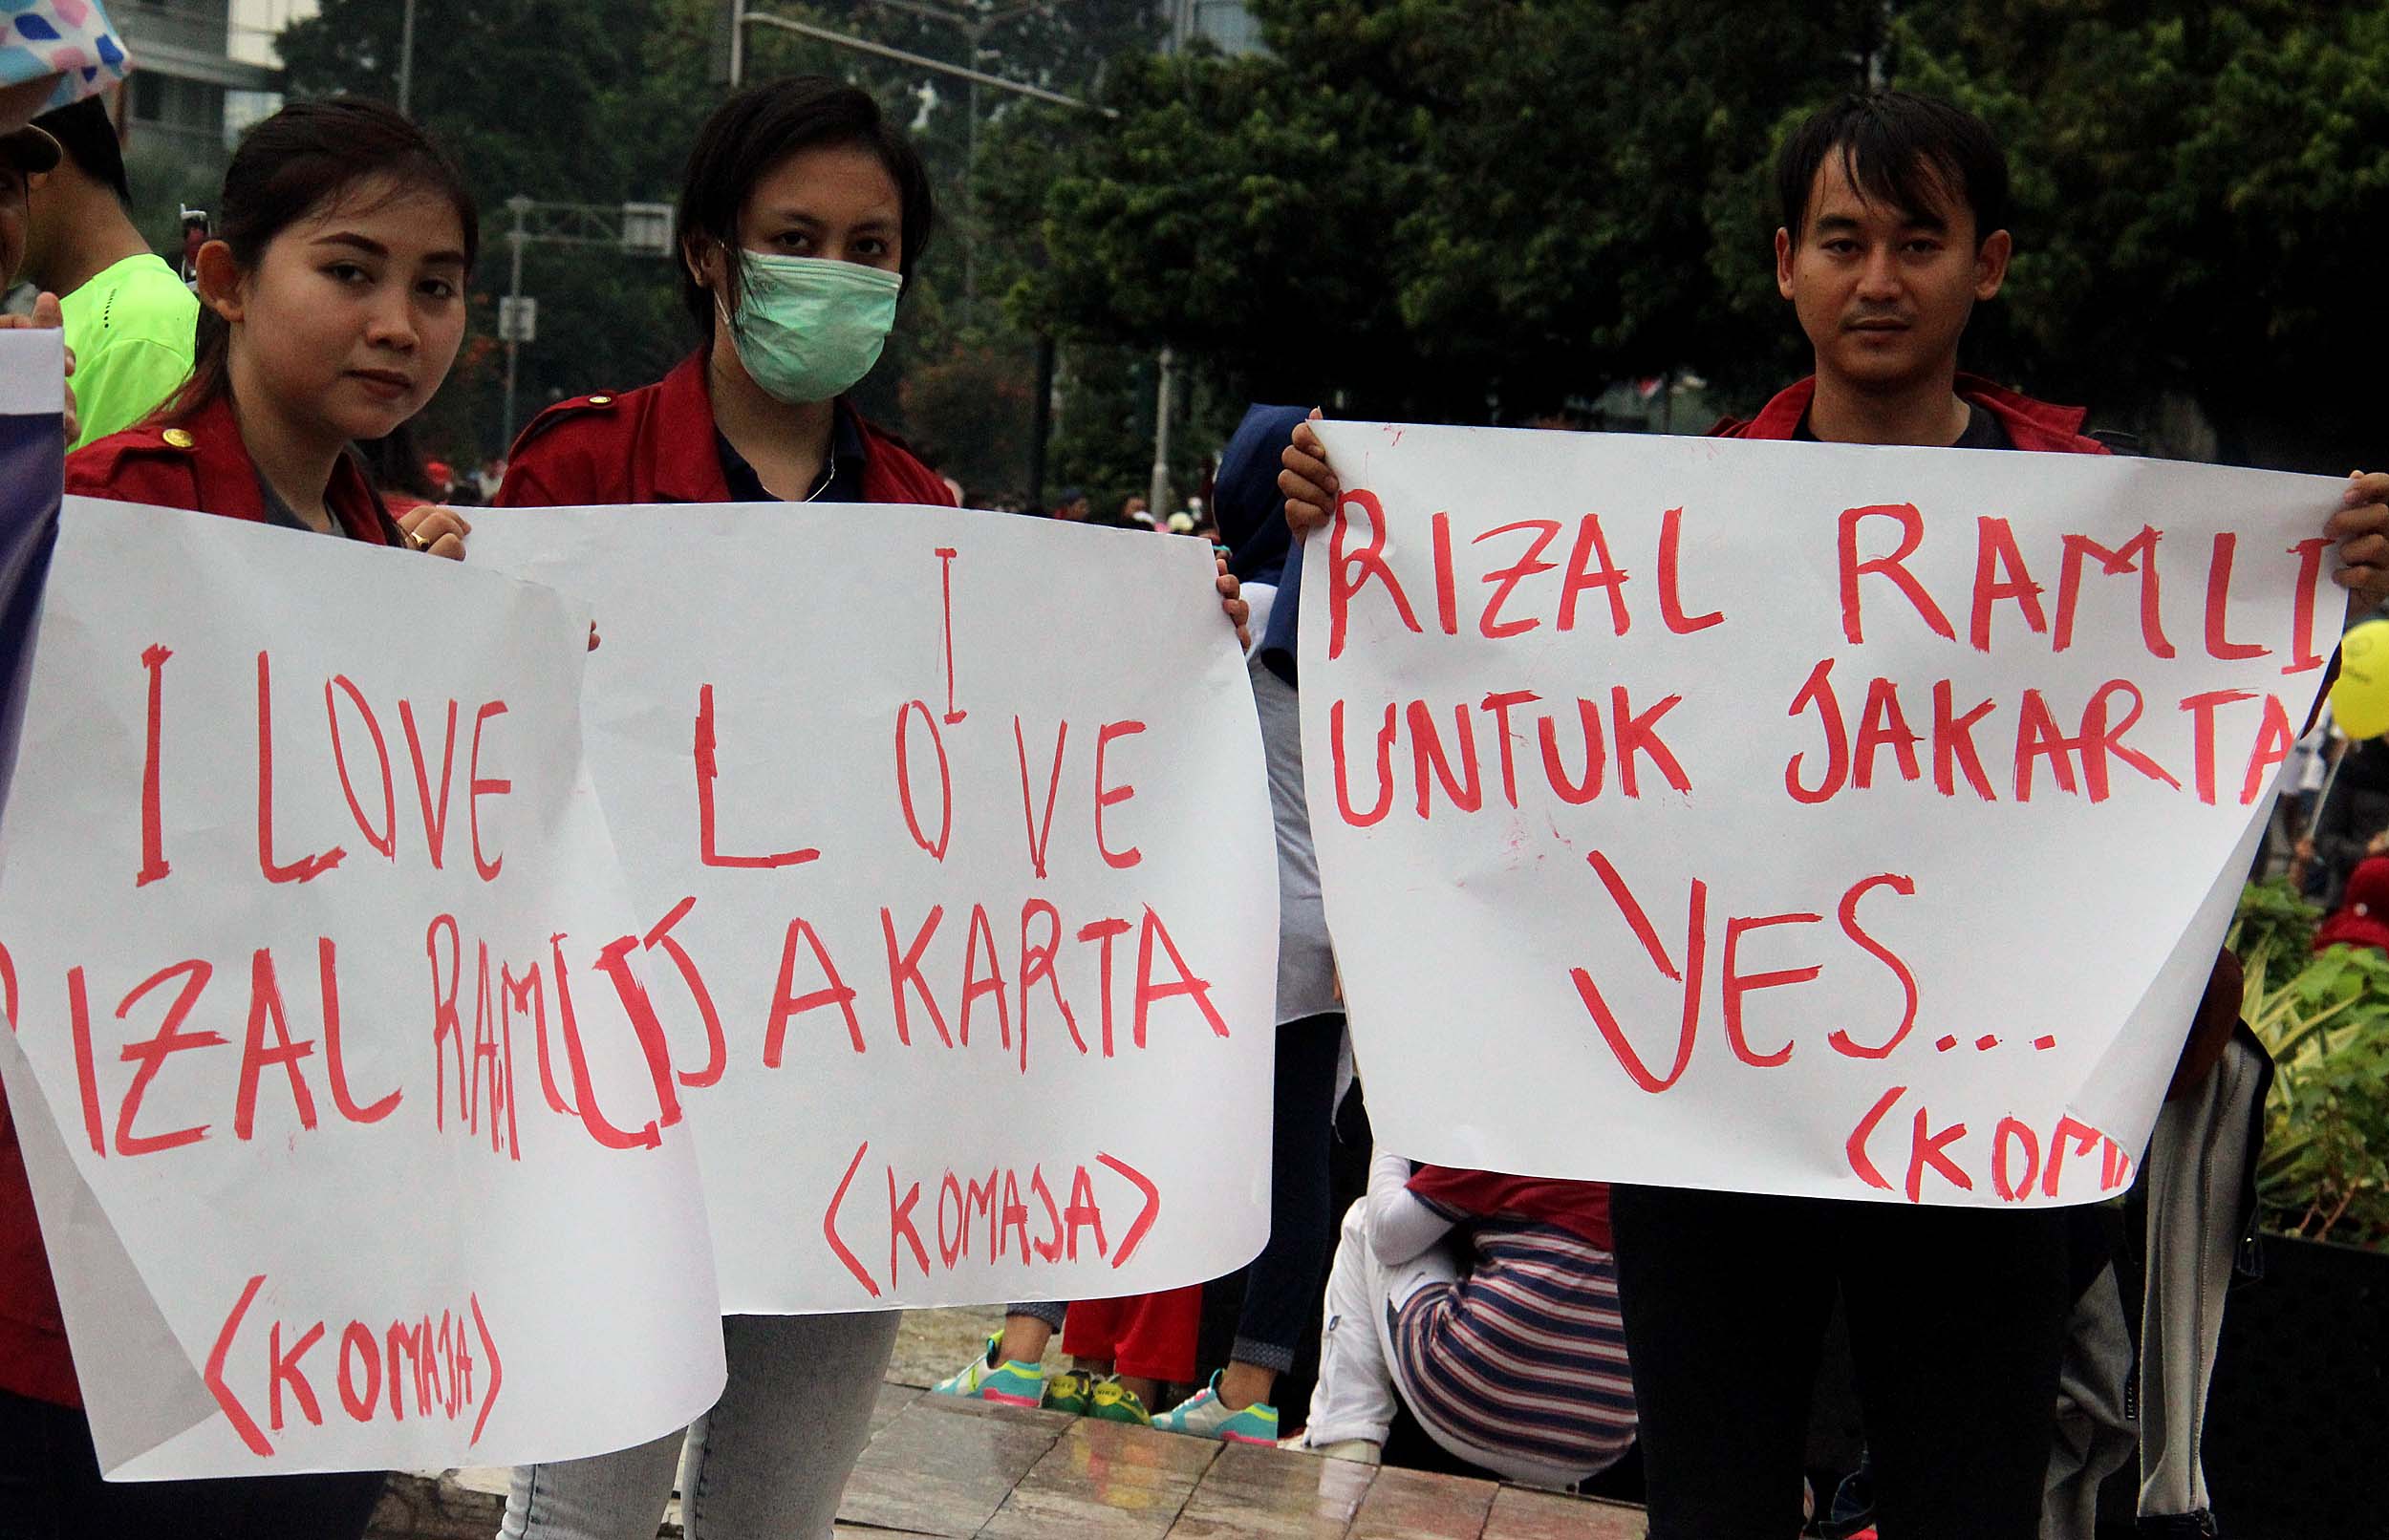 I LOVE
RIZAL RAMLI
(KOMAJA)
I
LOVE
JAKARTA
(KOMAJA)
RIZAL RAMLI
UNTUK JAKARTA
YES...
(KOM